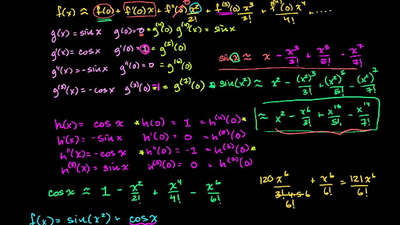 f(x) ≈ f(0) + f'(0)x + f''(0)x²/2! + f⁽³⁾(0)x³/3! + f⁽⁴⁾(0)x⁴/4! + ....
g(x) = sin x g(0) = 0 = g⁽⁴⁾(0) g⁽⁴⁾(x) = sin x
g'(x) = cos x g'(0) = 1 = g⁽⁵⁾(0)
g''(x) = -sin x g''(0) = 0 = g⁽⁶⁾(0)
g⁽³⁾(x) = -cos x g⁽³⁾(0) = -1 = g⁽⁷⁾(0)
sin x ≈ x - x³/3! + x⁵/5! - x⁷/7!
sin(x²) ≈ x² - (x²)³/3! + (x²)⁵/5! - (x²)⁷/7!
≈ x² - x⁶/3! + x¹⁰/5! - x¹⁴/7!
h(x) = cos x h(0) = 1 = h⁽⁴⁾(0)
h'(x) = -sin x h'(0) = 0 = h⁽⁵⁾(0)
h''(x) = -cos x h''(0) = -1 = h⁽⁶⁾(0)
h⁽³⁾(x) = sin x h⁽³⁾(0) = 0 = h⁽⁷⁾(0)
cos x ≈ 1 - x²/2! + x⁴/4! - x⁶/6!
120x⁶/3!·4·5·6 + x⁶/6! = 121x⁶/6!
6!
f(x) = sin(x²) + cos x